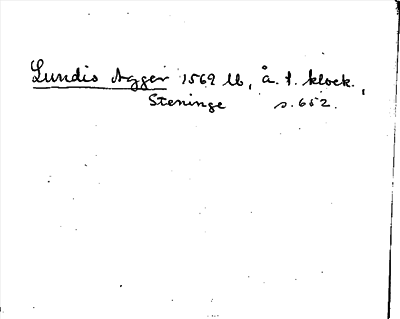 Lundis Agger 1569 ll, å. f. klock.,
Steninge s. 652.